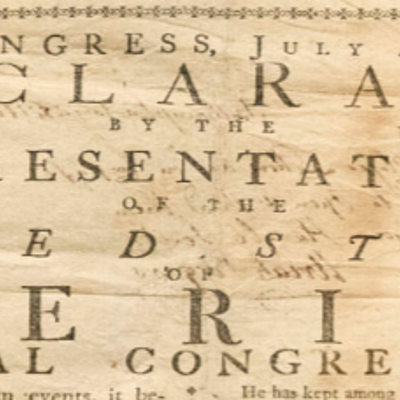 NGRESS, JULY
CLARA
BY THE
RESENTAT
OF THE
ED ST
OF
ERI
AL CONGRE
events, it be-
He has kept among